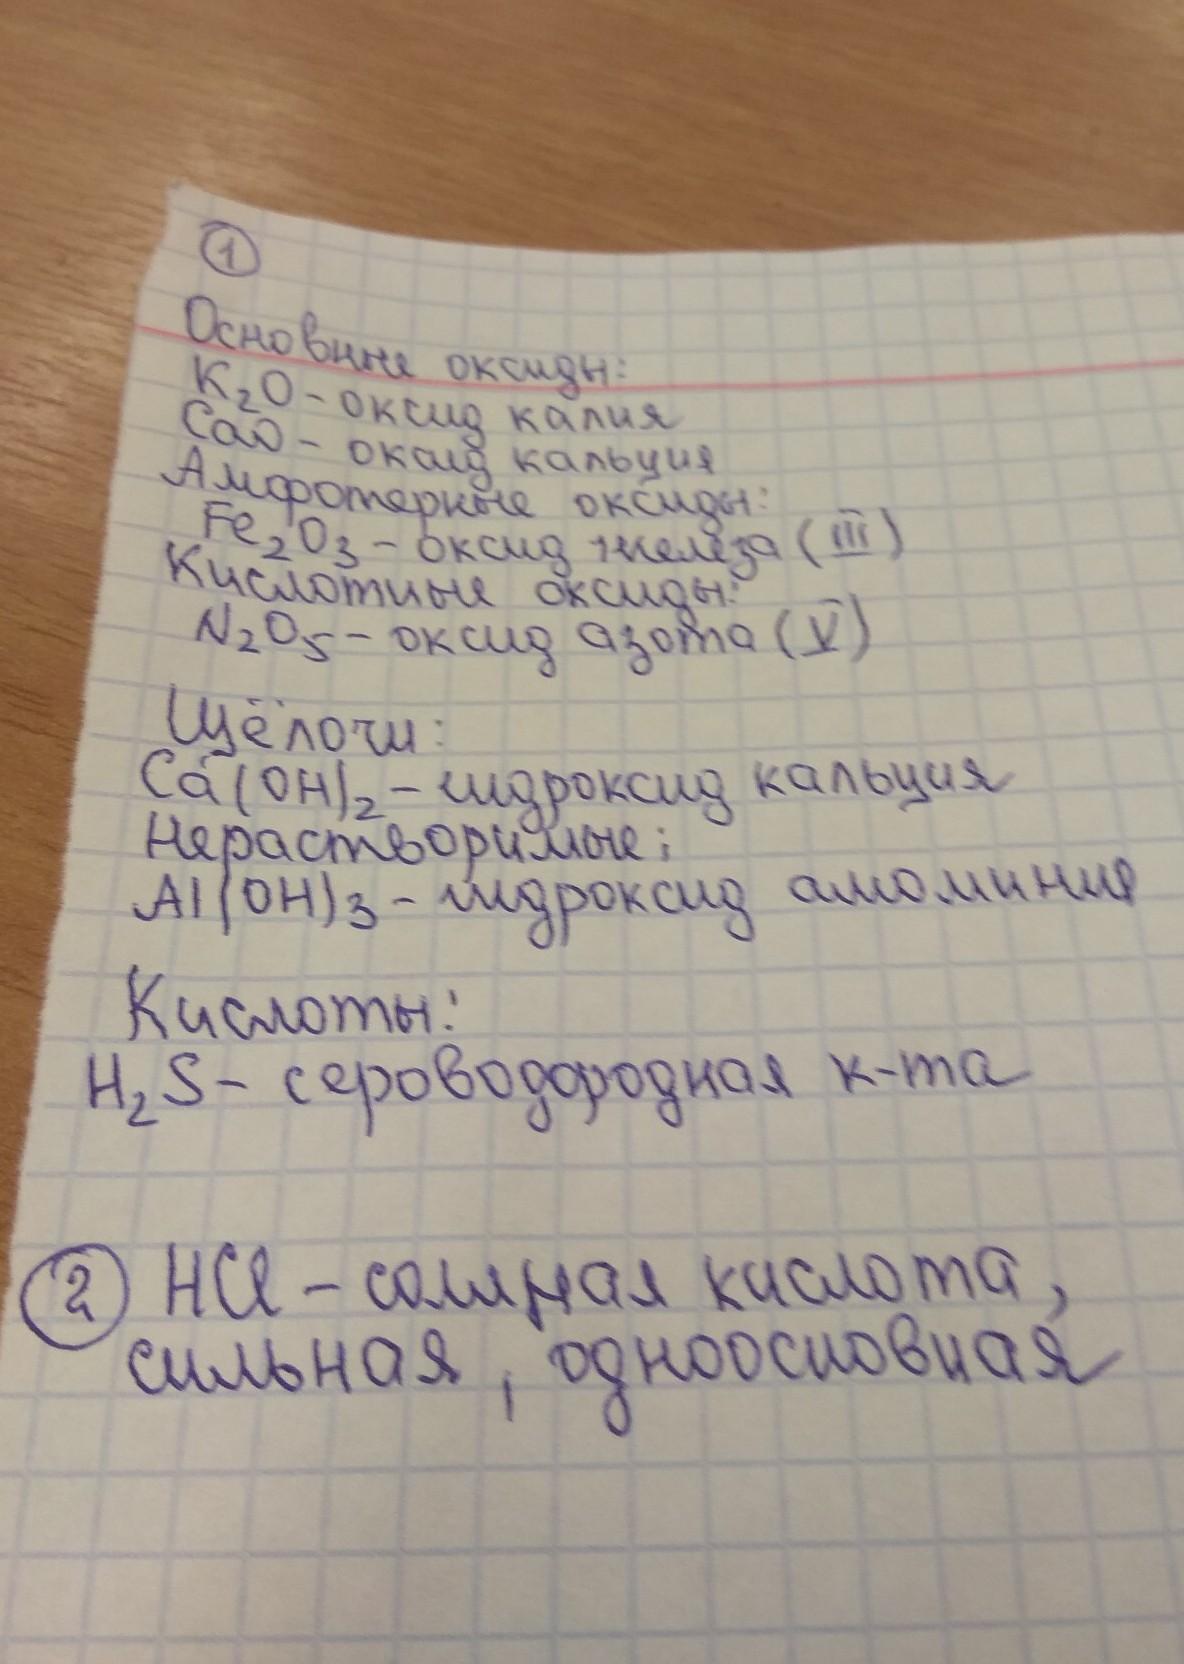 1
Основные оксиды:
K₂O - оксид калия
CaO - оксид кальция
Амфотерные оксиды:
Fe₂O₃ - оксид железа (III)
Кислотные оксиды:
N₂O₅ - оксид азота (V)
Щёлочи:
Ca(OH)₂ - гидроксид кальция
Нерастворимые:
Al(OH)₃ - гидроксид алюминия
Кислоты:
H₂S - сероводородная к-та
2 HCl - соляная кислота,
сильная, одноосновная